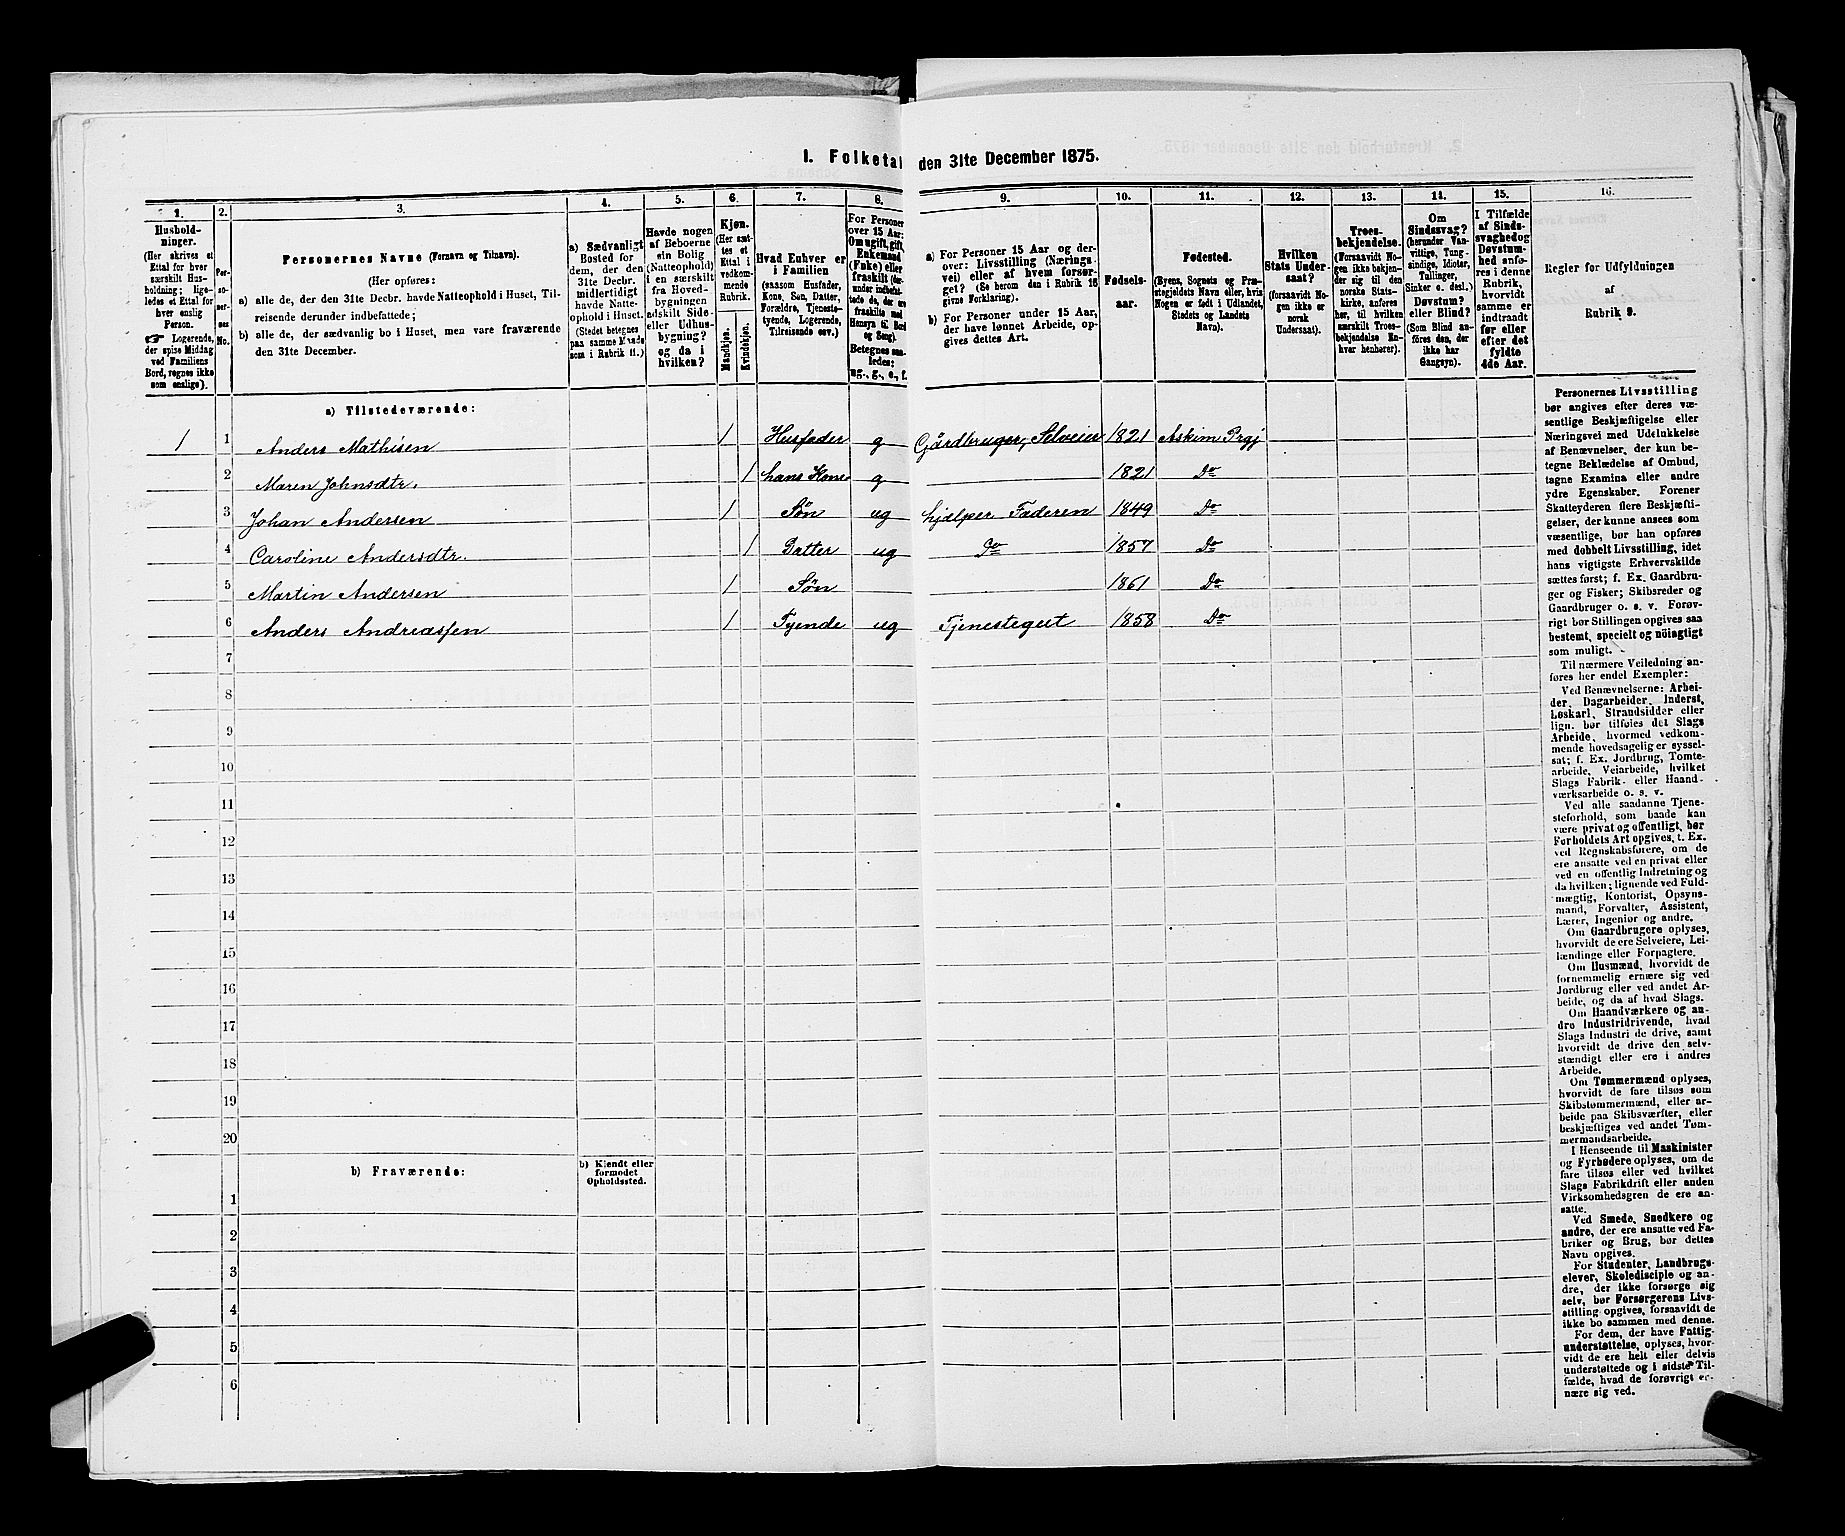 I. Folketal den 31te December 1875.
1. 2. 3. 4. 5. 6. 7. 8. 9. 10. 11. 12. 13. 14. 15. 16.
Hushold-
ninger.
(Her skrives et
Ettal for hver
særskilt Hus-
holdning; lige-
ledes et Ettal for
hver enslig
Person.
☞ Logerende,
der spise Middag
ved Familiens
Bord, regnes ikke
som enslige).
Per-
so-
ner-
nes
No.
Personernes Navne (Fornavn og Tilnavn).
(Her opføres:
a) alle de, der den 31te Decbr. havde Natteophold i Huset, Til-
reisende derunder indbefattede;
b) alle de, der sædvanlig bo i Huset, men vare fraværende
den 31te December.
a) Sædvanligt
Bosted for
dem, der den
31te Decbr.
midlertidigt
havde Natte-
ophold i Huset.
(Stedet betegnes
paa samme Maade
som i Rubrik 11.)
Havde nogen
af Beboerne
sin Bolig
(Natteophold)
i en særskilt
fra Hoved-
bygningen
adskilt Side-
eller Udhus-
bygning?
og da i
hvilken?
Kjøn.
(Her sæt-
tes et
Ettal i
vedkom-
mende
Rubrik.
Mandkjøn.
Kvindekjøn.
Hvad Enhver er
i Familien
(saasom Husfader,
Kone, Søn, Datter,
Forældre, Tjeneste-
tyende, Logerende,
Tilreisende osv.)
For Personer
over 15 Aar:
Om ugift, gift,
Enkemand
(Enke) eller
fraskilt (der-
under indbefat-
tede de, der ere
fraskilte med
Hensyn til Bord
og Seng).
Betegnes saa-
ledes:
ug., g., e., f.
a) For Personer 15 Aar og der-
over: Livsstilling (Nærings-
vei) eller af hvem forsør-
get? (Se herom den i Rubrik 16
givne Forklaring).
b) For Personer under 15 Aar,
der have lønnet Arbeide, op-
gives dettes Art.
Fødsels-
aar.
Fødested.
(Byens, Sognets og Præ-
stegjeldets Navn eller, hvis
Nogen er født i Udlandet,
Stedets og Landets
Navn).
Hvilken
Stats Under-
saat?
(forsaavidt No-
gen ikke er
norsk
Undersaat).
Troes-
bekjendelse.
(Forsaavidt No-
gen ikke bekjen-
der sig til den
norske Stats-
kirke, anføres
her, til hvilken
særskilt Troes-
bekjendelse En-
hver henhører).
Om
Sindssvag?
(herunder Van-
vittige, Tung-
sindige, Idioter,
Tullinger,
Sinker o. desl.)
Døvstum?
eller Blind?
(Som Blind an-
føres den, der
ikke har
Gangsyn).
I Tilfælde
af Sinds-
svaghed og
Døvstum-
hed anfø-
res i denne
Rubrik,
hvorvidt
samme er
indtraadt
før eller
efter det
fyldte
4de Aar.
Regler for Udfyldningen
af
Rubrik 9.
a) Tilstedeværende:
1 1 Anders Mathisen 1 Husfader g Gårdbruger, Selveier 1821 Askim Prgj
2 Maren Johnsdtr. 1 hans Kone g 1821 Do
3 Johan Andersen 1 Søn ug hjælper Faderen 1849 Do
4 Caroline Andersdtr. 1 Datter ug Do 1857 Do
5 Martin Andersen 1 Søn 1861 Do
6 Anders Andreassen 1 Tyende ug Tjenestegut 1858 Do
7
8
9
10
11
12
13
14
15
16
17
18
19
20
b) Fraværende:
b) Kjendt eller
formodet
Opholdssted.
1
2
3
4
5
6
Personernes Livsstilling
bør angives efter deres væ-
sentlige Beskjæftigelse eller
Næringsvei med Udelukkelse
af Benævnelser, der kun be-
tegne Beklædelse af Ombud,
tagne Examina eller andre
ydre Egenskaber. Forener
Skatteyderen flere Beskjæfti-
gelser, der kunne ansees som
væsentlige, bør han opføres
med dobbelt Livsstilling, idet
hans vigtigste Erhvervskilde
sættes først; f. Ex. Gaardbru-
ger og Fisker; Skibsreder og
Gaardbruger o. s. v. Forøv-
rigt bør Stillingen opgives saa
bestemt, specielt og nöiagtigt
som muligt.
Til nærmere Veiledning an-
føres her endel Exempler:
Ved Benævnelserne: Arbei-
der, Dagarbeider, Inderst,
Løskarl, Strandsidder eller
lign. bør tilføies det Slags
Arbeide, hvormed vedkom-
mende hovedsagelig er syssel-
sat; f. Ex. Jordbrug, Tomte-
arbeide, Veiarbeide, hvilket
Slags Fabrik- eller Haand-
værksarbeide o. s. v.
Ved alle saadanne Tjene-
steforhold, som baade kan
være privat og offentligt, bør
Forholdets Art opgives, t. Ex.
ved Regnskabsførere, om de
ere ansatte ved en privat eller
ved en offentlig Indretning og
da hvilken; lignende ved Fuld-
mægtig, Kontorist, Opsyns-
mand, Forvalter, Assistent,
Lærer, Ingenior og andre.
Om Gaardbrugere oplyses,
hvorvidt de ere Selveiere, Lei-
lændinge eller Forpagtere.
Om Husmænd, hvorvidt de
fornemmelig ernære sig ved
Jordbrug eller ved andet Ar-
beide, og da af hvad Slags.
Om Haandværkere og an-
dre Industridrivende, hvad
Slags Industri de drive, samt
hvorvidt de drive den selv-
stændigt eller ere i andres
Arbeide.
Om Tømmermænd oplyses,
hvorvidt de fare tilsøs som
Skibstømmermænd, eller ar-
beide paa Skibsværfter, eller
beskjæftiges ved andet Tøm-
mermandsarbeide.
I Henseende til Maskinister
og Fyrbødere oplyses, om de
fare tilsøs eller ved hvilket
Slags Fabrikdrift eller anden
Virksomhedsgren de ere an-
satte.
Ved Smede, Snedkere og
andre, der ere ansatte ved Fa-
briker og Brug, bør dettes
Navn opgives.
For Studenter, Landbrugs-
elever, Skoledisciple og an-
dre, der ikke forsørge sig
selv, bør Forsørgerens Livs-
stilling opgives, forsaavidt de
ikke bo sammen med denne.
For dem, der have Fattig-
understøttelse, oplyses, hvor-
vidt de ere helt eller delvis
understøttede og i sidste Til-
fælde, hvad de forøvrigt er-
nære sig ved.